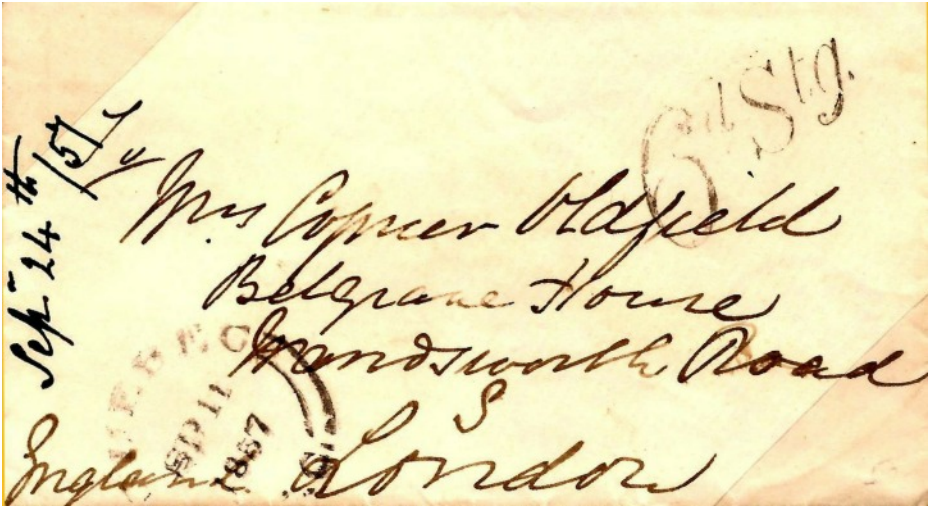 6d Stg.
Sep 24th /57
Mrs Copner Oldfield
Belgrave House
Wandsworth Road
S
London
England
QUEBEC
SP 11
1857